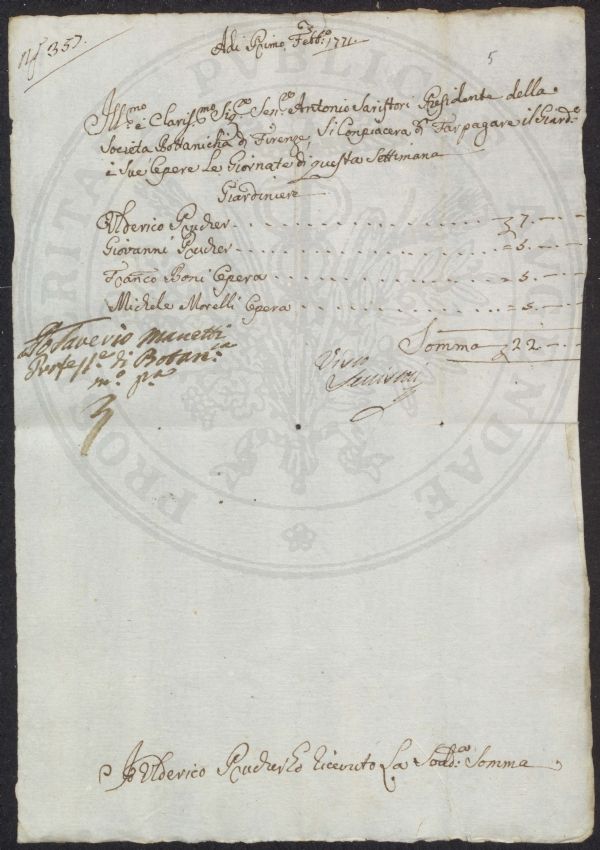 N.° 357.
5
Adi Primo Febb.° 1771.
Ill.mo e Claris.mo Sig.re Sen.re Antonio Saristori Presidente della
Società Bottanicha di Firenze, Si Conpiacera di Far pagare il Giard.e
e Sue Opere Le Giornate di questa Settimana
Giardiniere
Ulderico Prucher 7. — —
Giovanni Prucher = 5. — —
Fran.co Boni Opera = 5. — —
Michele Morelli Opera = 5. — —
Somma 22. — —
Saverio Manetti
Profess.re di Botan.ca
m.o p.a
Visto
Io Ulderico Prucher ho ricevuto La Sud.a Somma
PUBLICAE
PROSPERITATI AUGENDAE